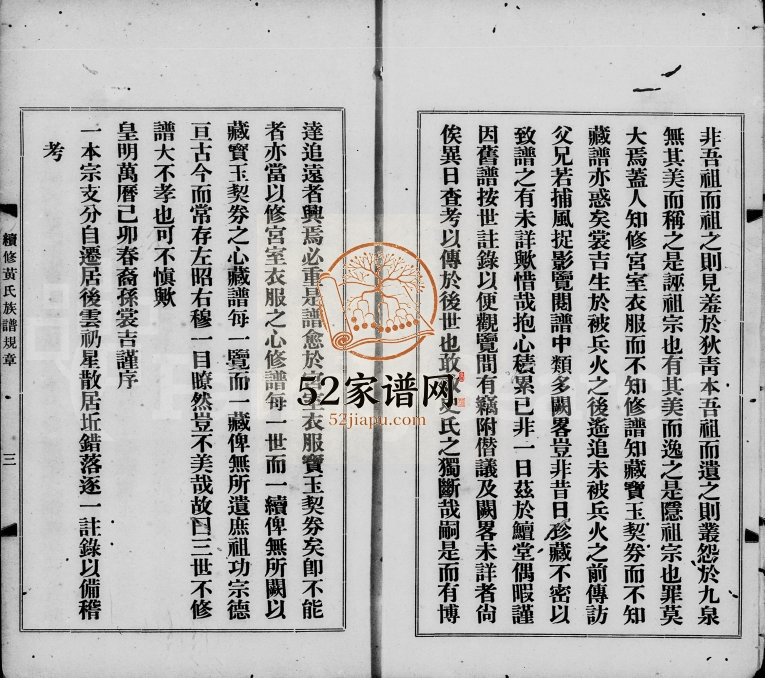 非吾祖而祖之則見羞於狄靑本吾祖而遺之則叢怨於九泉
無其美而稱之是誣祖宗也有其美而逸之是隱祖宗也罪莫
大焉蓋人知修宮室衣服而不知修譜知藏寶玉契劵而不知
藏譜亦惑矣裳吉生於被兵火之後遙追未被兵火之前傳訪
父兄若捕風捉影覽閱譜中類多闕畧豈非昔日珍藏不密以
致譜之有未詳歟惜哉抱心積累已非一日茲於鱣堂偶暇謹
因舊譜按世註錄以便觀覽間有竊附僭議及闕畧未詳者尙
俟異日查考以傳於後世也敢 氏之獨斷哉嗣是而有博
達追遠者興焉必重是譜愈於宮室衣服寶玉契劵矣卽不能
者亦當以修宮室衣服之心修譜每一世而一續俾無所闕以
藏寶玉契劵之心藏譜每一覽而一藏俾無所遺庶祖功宗德
亘古今而常存左昭右穆一目瞭然豈不美哉故曰三世不修
譜大不孝也可不愼歟
皇明萬曆己卯春裔孫裳吉謹序
一本宗支分自遷居後雲礽星散居址錯落逐一註錄以備稽
考
續修黃氏族譜規章
三
52家谱网
52jiapu.com